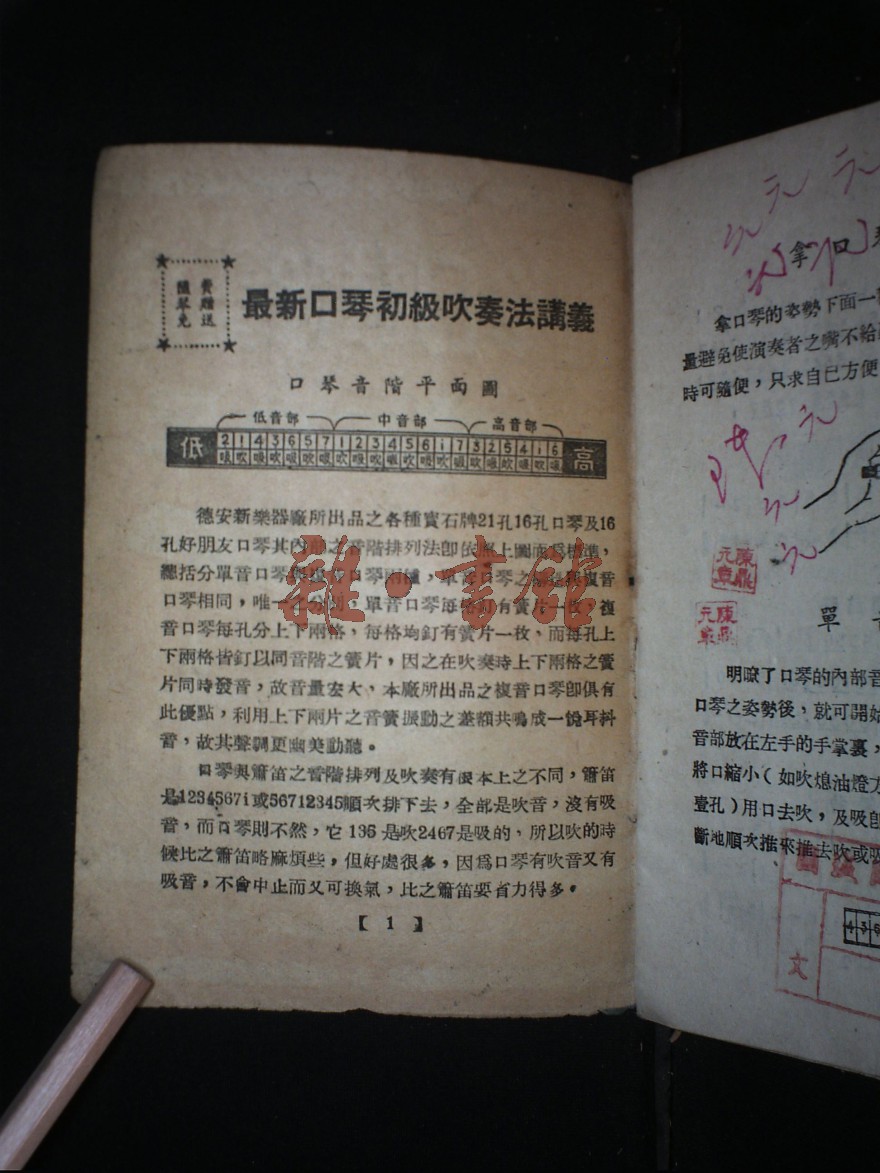 隨琴免
費贈送
最新口琴初級吹奏法講義
口琴音階平面圖
低音部 中音部 高音部
低 2 1 4 3 6 5 7 1 2 3 4 5 6 i 7 3 2 5 4 i 6 高
吸 吹 吸 吹 吸 吹 吸 吹 吸 吹 吸 吹 吸 吹 吸 吹 吸 吹 吸 吹 吸
德安新樂器廠所出品之各種寶石牌21孔16孔口琴及16
孔好朋友口琴其內部之音階排列法卽依照上圖而爲標準,
總括分單音口琴與複音口琴兩種,單音口琴之構造與複音
口琴相同,唯一之分別,單音口琴每格釘有簧片一枚,複
音口琴每孔分上下兩格,每格均釘有簧片一枚,而每孔上
下兩格皆釘以同音階之簧片,因之在吹奏時上下兩格之簧
片同時發音,故音量宏大,本廠所出品之複音口琴卽俱有
此優點,利用上下兩片之音簧振動之差額共鳴成一悅耳抖
音,故其聲調更幽美動聽。
口琴與簫笛之音階排列及吹奏有根本上之不同,簫笛
是1234567i或56712345順次排下去,全部是吹音,沒有吸
音,而口琴則不然,它135是吹2467是吸的,所以吹的時
候比之簫笛略麻煩些,但好處很多,因爲口琴有吹音又有
吸音,不會中止而又可換氣,比之簫笛要省力得多。
【1】
拿口
拿口琴的姿勢下面一
量避免使演奏者之嘴不給
時可隨便,只求自己方便
陳鼎元章
陳鼎元章
單
明暸了口琴的內部音
口琴之姿勢後,就可開始
音部放在左手的手掌裏,
將口縮小(如吹熄油燈方
壹孔)用口去吹,及吸卽
斷地順次推來推去吹或吸
文
雜·書館